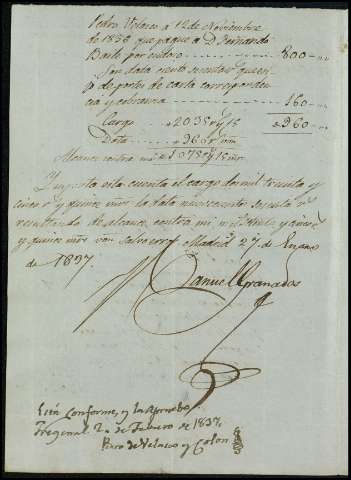 Pedro Velasco a 12 de Noviembre
de 1836 que pague a D. Fernando
Barte por entero 800
Son data ciento sesenta rs que en
go de portes de carta corresponden
cia y estranza 160
Cargo 2035 rs 15 960
Data 960 rs mrs
Alcance contra mi 1075 rs 15 mrs
Importa esta cuenta el cargo dos mil treinta y
cinco rs y quince mrs la data nuevecientos sesenta rs
resultando de alcance contra mi mil setenta y cinco rs
y quince mrs von salvo error Madrid 27 de Enero
de 1837.
Manuel Granados
Está Conforme, y la apruebo.
Fregenal 2 de Febrero de 1837.
de Velasco y Colon